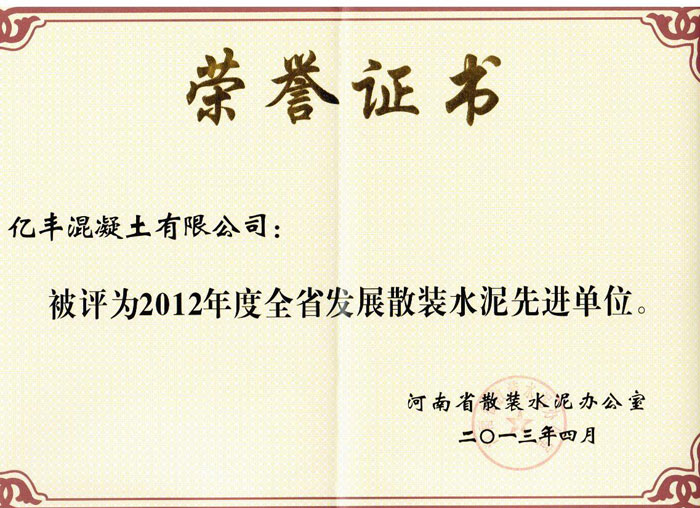 荣誉证书
亿丰混凝土有限公司：
被评为2012年度全省发展散装水泥先进单位。
河南省散装水泥办公室
二〇一三年四月